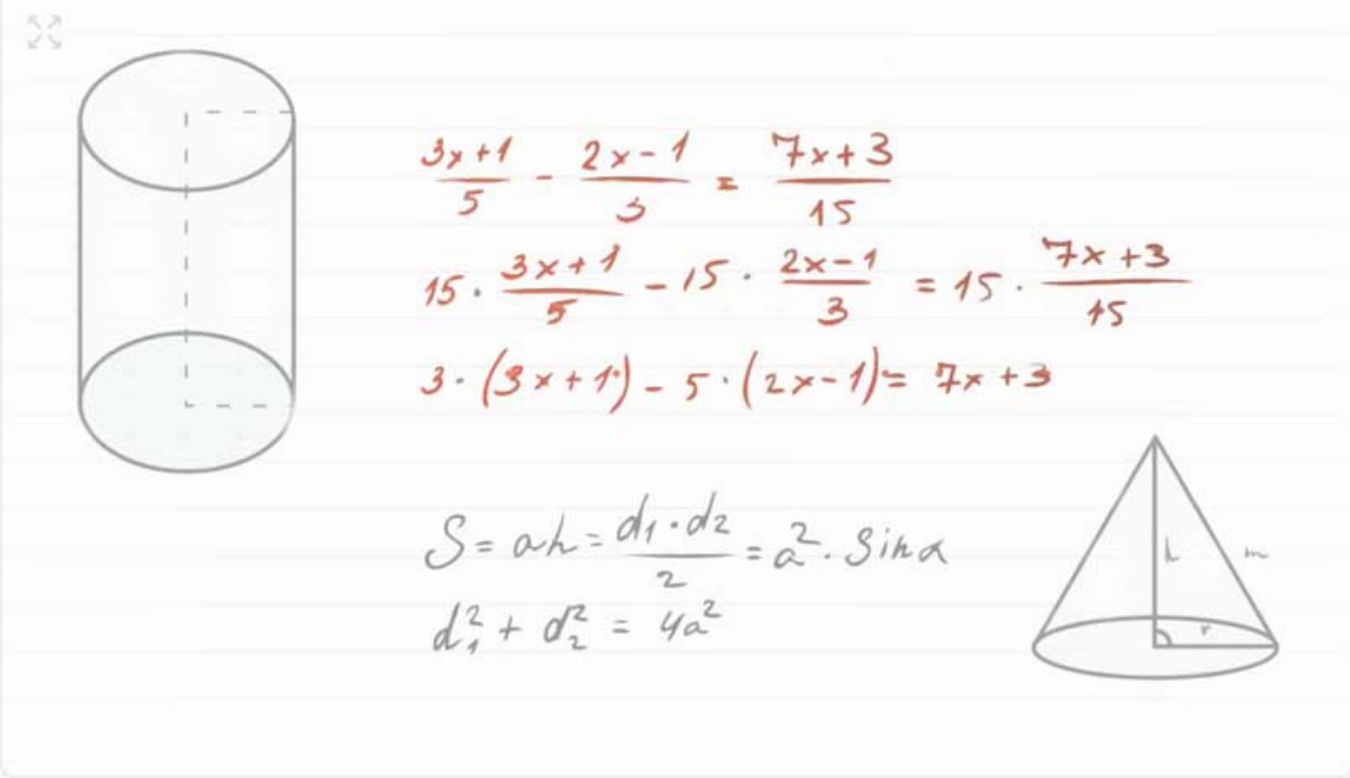 3x+1/5 - 2x-1/3 = 7x+3/15
15 · 3x+1/5 - 15 · 2x-1/3 = 15 · 7x+3/15
3 · (3x+1) - 5 · (2x-1) = 7x+3
S = ah = d₁·d₂/2 = a² · sin α
d₁² + d₂² = 4a²
h m
r